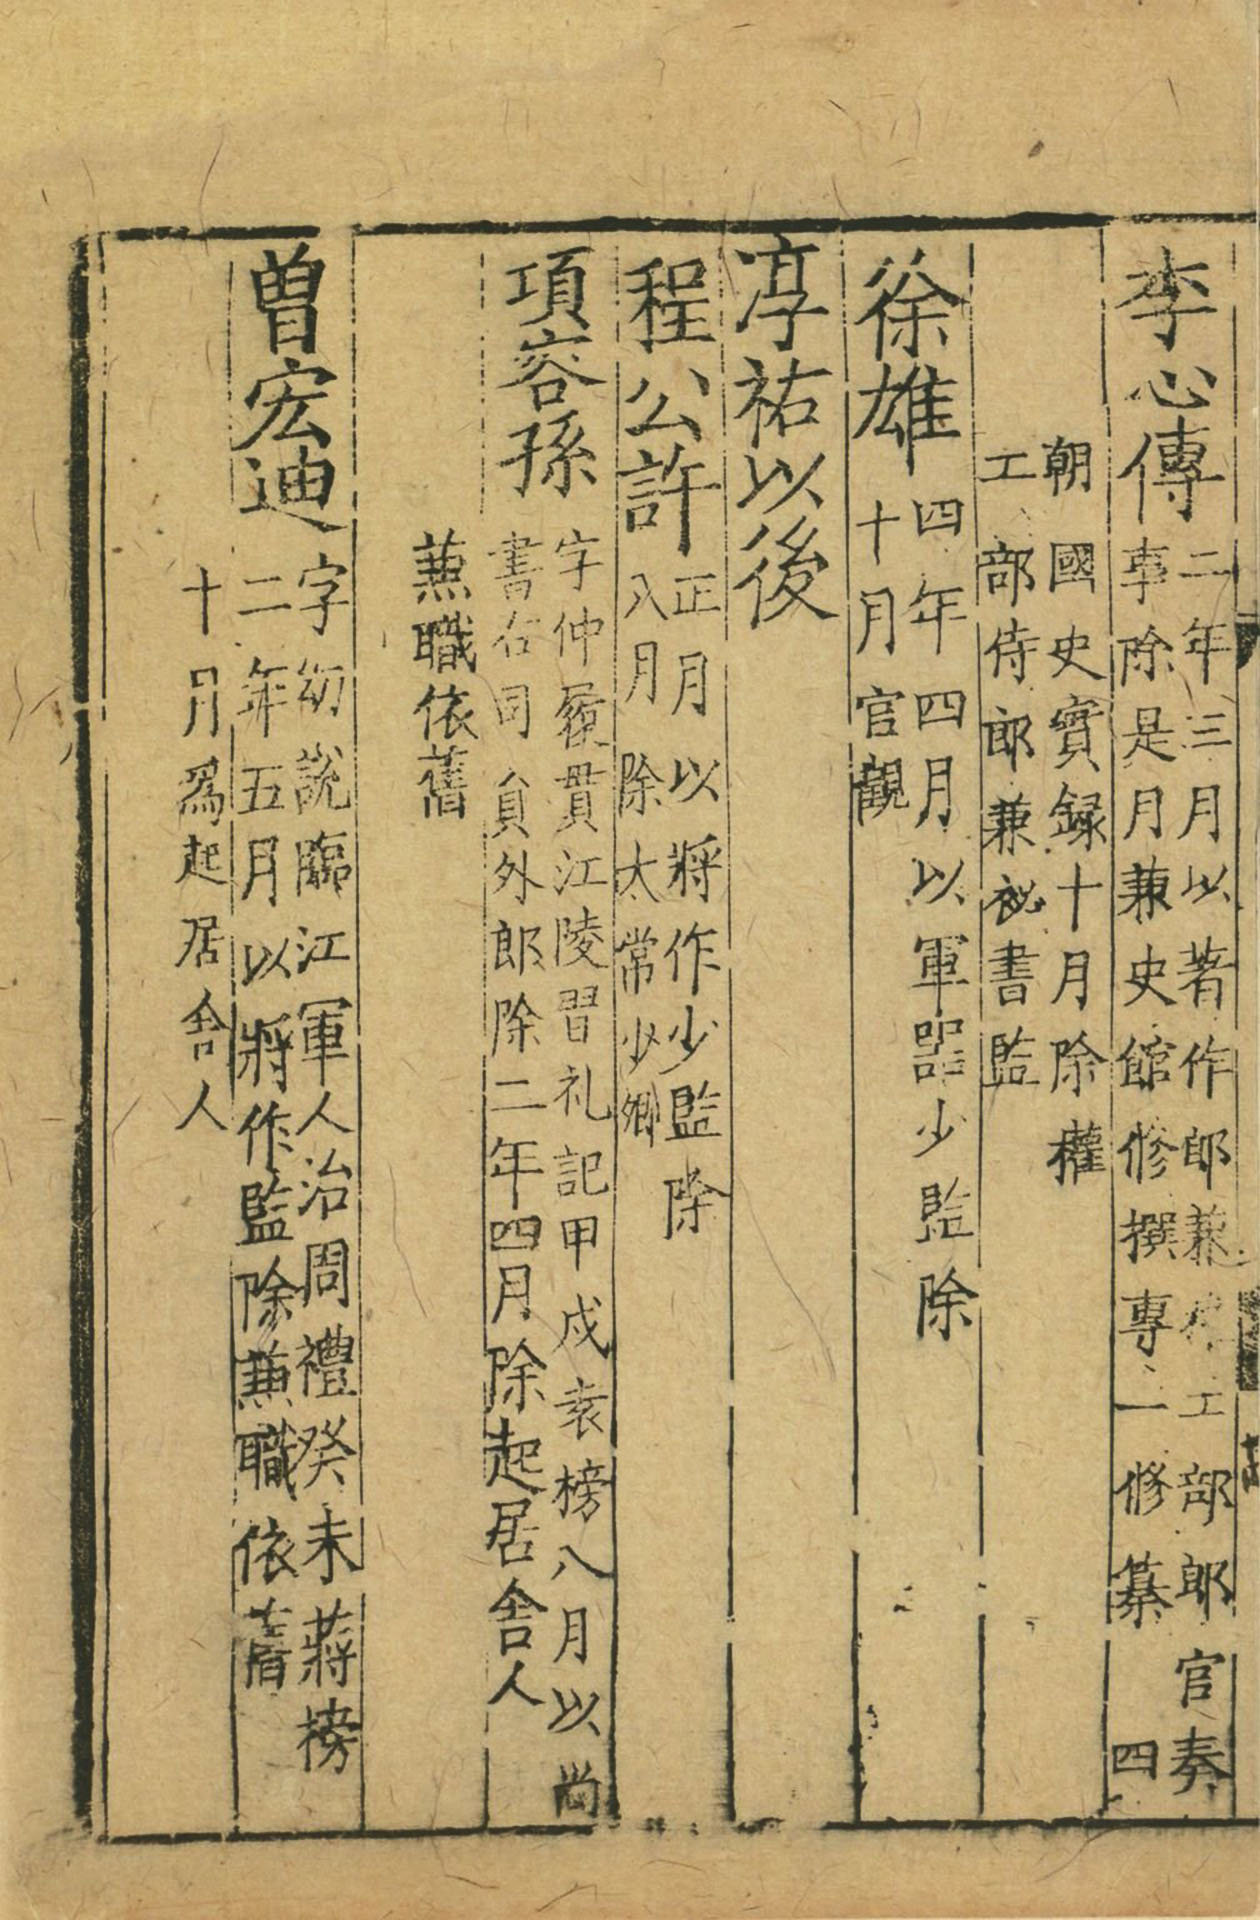 李心傳
二年三月以著作郎兼 工部郎官奏
事除是月兼史館修撰專一修纂四
朝國史實録十月除權
工部侍郎兼祕書監
徐雄
四年四月以軍器少監除
十月官觀
淳祐以後
程公許
正月以將作少監除
八月除太常少卿
項容孫
字仲履貫江陵習礼記甲戍袁榜八月以尚
書右司貟外郎除二年四月除起居舎人
兼職依舊
曾宏迪
字幼說臨江軍人治周禮癸未蔣榜
二年五月以將作監除兼職依舊
十月爲起居舎人